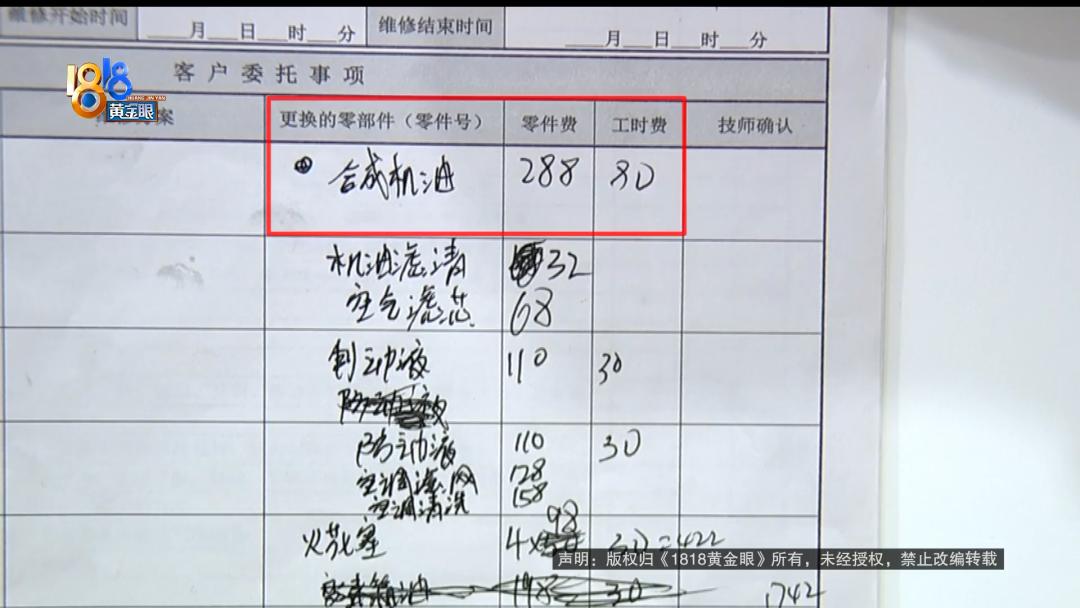 维修开始时间 ___月___日___时___分 维修结束时间 ___月___日___时___分
客户委托事项
1818黄金眼
案 更换的零部件（零件号） 零件费 工时费 技师确认
① 合成机油 288 80
机油滤清 32
空气滤芯 68
制动液 110 30
防动液 110 30
空调滤网 128
空调清洗 158
98
火花塞 4× 30=422
声明：版权归《1818黄金眼》所有，未经授权，禁止改编转载
198 30 1742